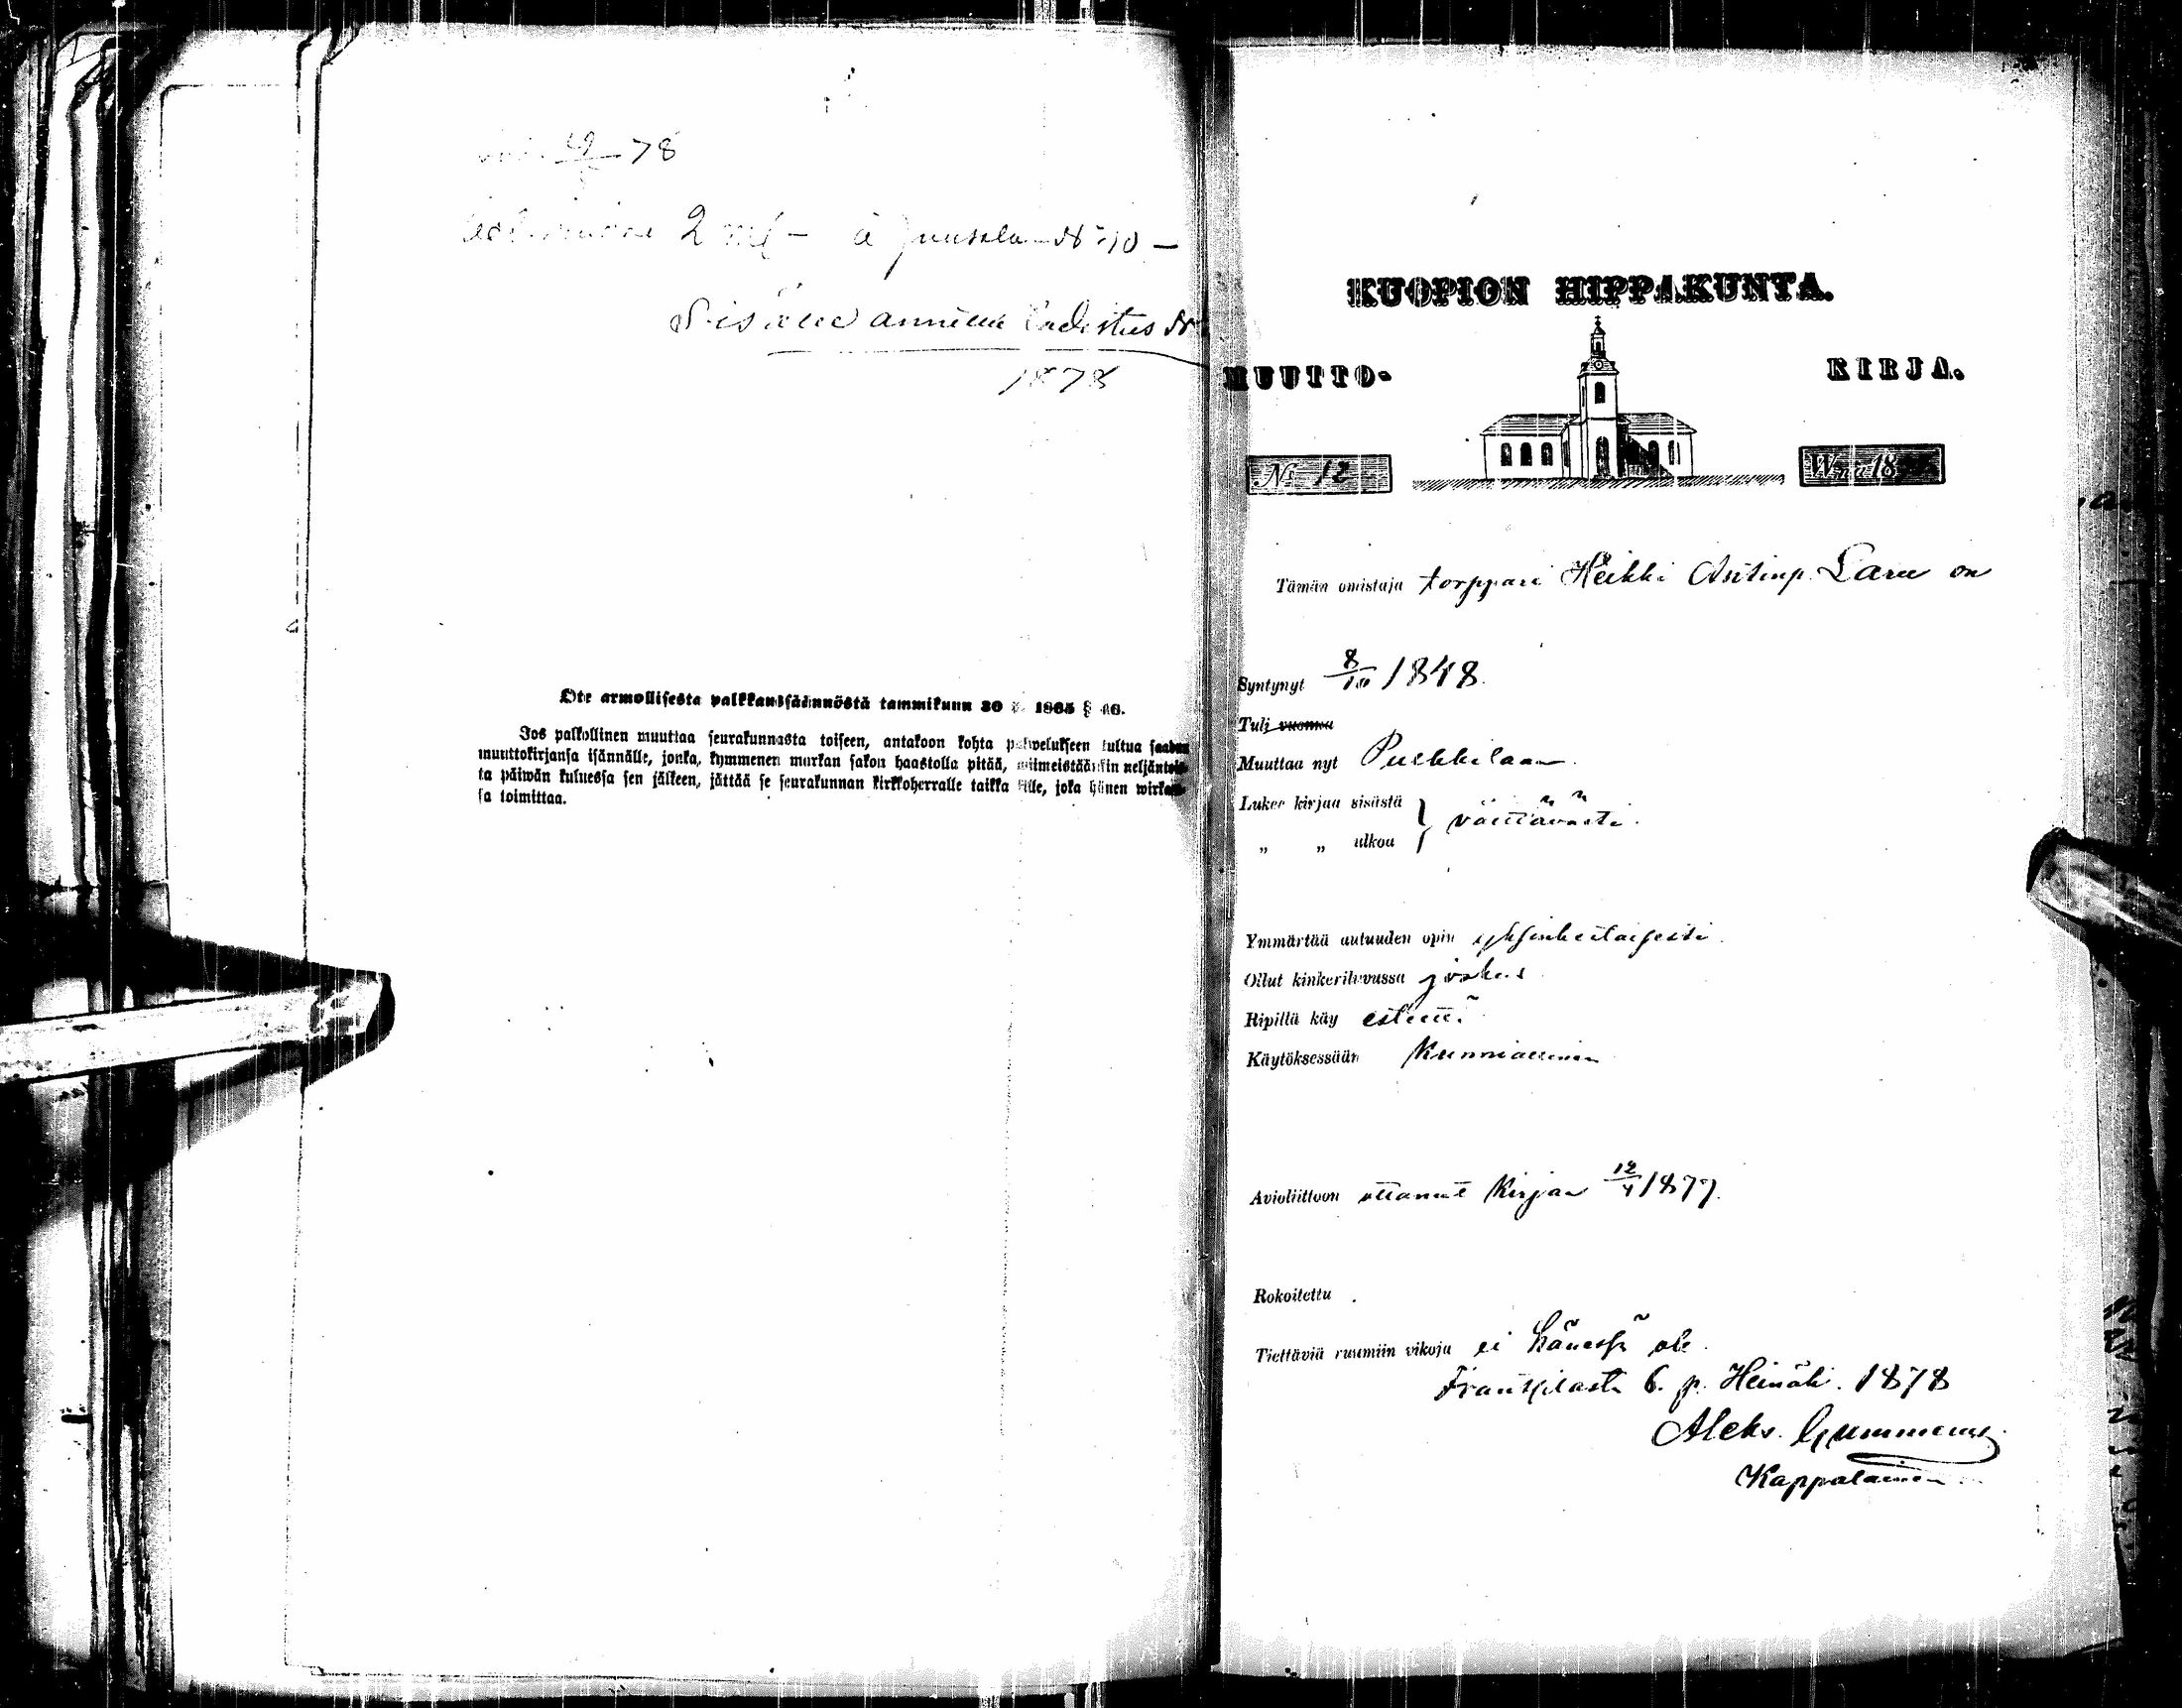 78
2 — à Juusola N:o 10 —
Sisälle annettu todistus N
1878
Ote armollisesta palkkaussäännöstä tammikuun 30 p. 1865 § 46.
Jos palkollinen muuttaa seurakunnasta toiseen, antakoon kohta palwelukseen tultua saadun
muuttokirjansa isännälle, jonka, kymmenen markan sakon haastolla pitää, wiimeistäänkin neljäntois-
ta päiwän kuluessa sen jälkeen, jättää se seurakunnan kirkkoherralle taikka sille, joka hänen wirkaan-
sa toimittaa.
KUOPION HIPPAKUNTA.
MUUTTO- KIRJA.
No 12 Wna 18
Tämän omistaja torppari Heikki Antinp. Laru on
Syntynyt 8/10 1848.
Tuli vuonna
Muuttaa nyt Pulkkilaan.
Lukee kirjaa sisästä
„ „ ulkoa } välttävästi.
Ymmärtää autuuden opin yksinkertaisesti.
Ollut kinkeriluvussa joskus
Ripillä käy esteettä
Käytöksessään Kunniallinen
Avioliittoon ottanut kirjan 12/4 1877.
Rokoitettu .
Tiettäviä ruumiin vikoja ei hänessä ole.
Frantsilasta 6. p. Heinäk. 1878
Aleks. Gummerus
Kappalainen